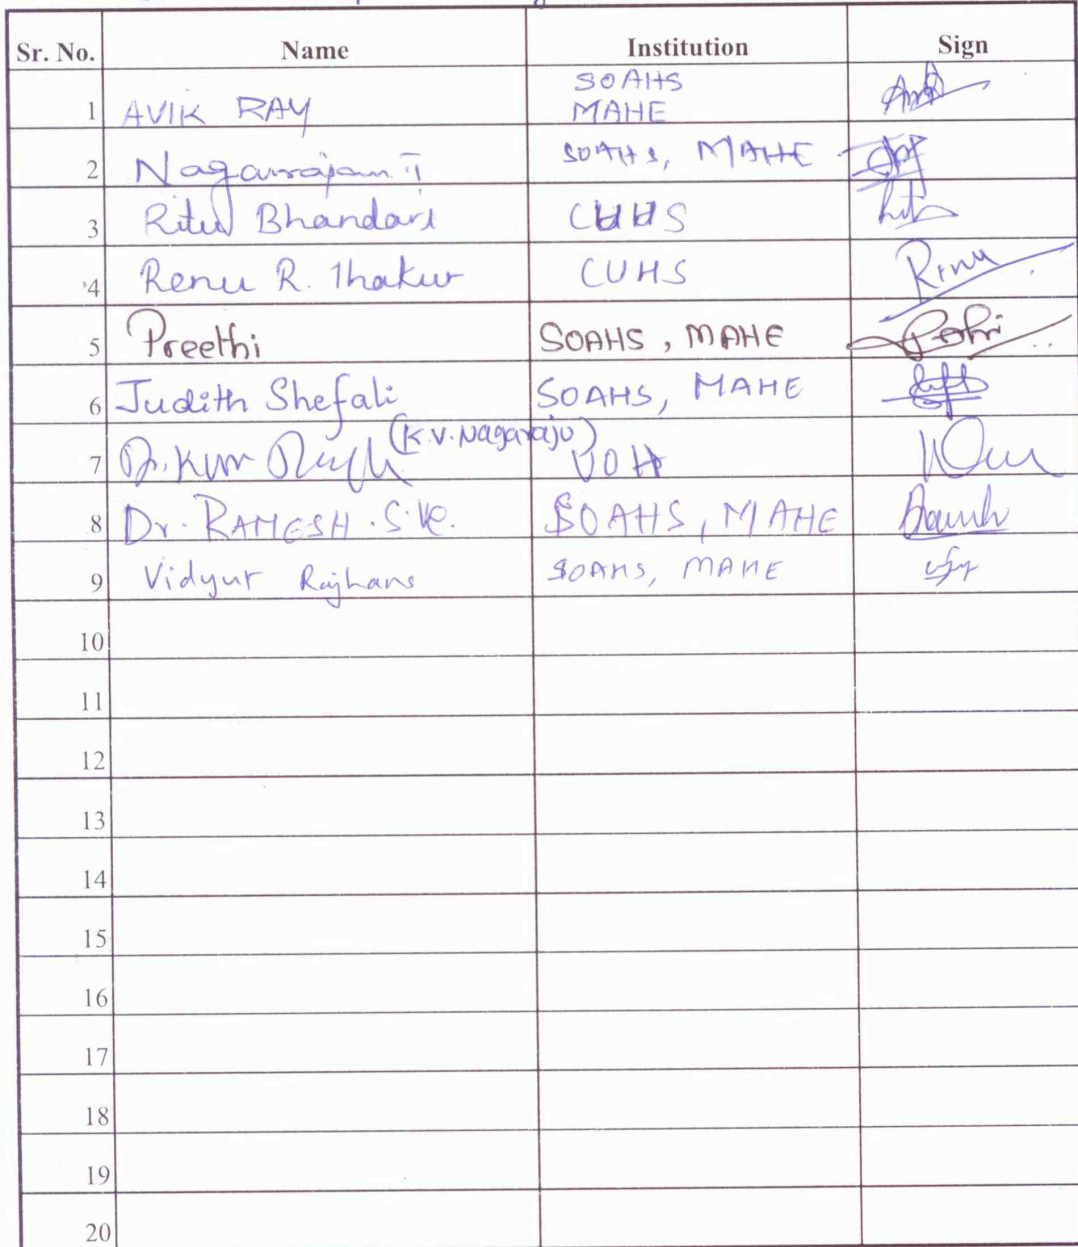 Sr. No. Name Institution Sign
SOAHS
1 AVIK RAY MAHE
2 Nagarrajan T SOAHS, MAHE
3 Ritu Bhandari CUHS
4 Renu R. Thakur CUHS Renu
5 Preethi SOAHS, MAHE
6 Judith Shefali SOAHS, MAHE
(K.V. Nagaraju)
7 Dr. UOH
8 Dr. RAMESH. S.Ve. SOAHS, MAHE
9 Vidyut Rajhans SOAHS, MAHE
10
11
12
13
14
15
16
17
18
19
20